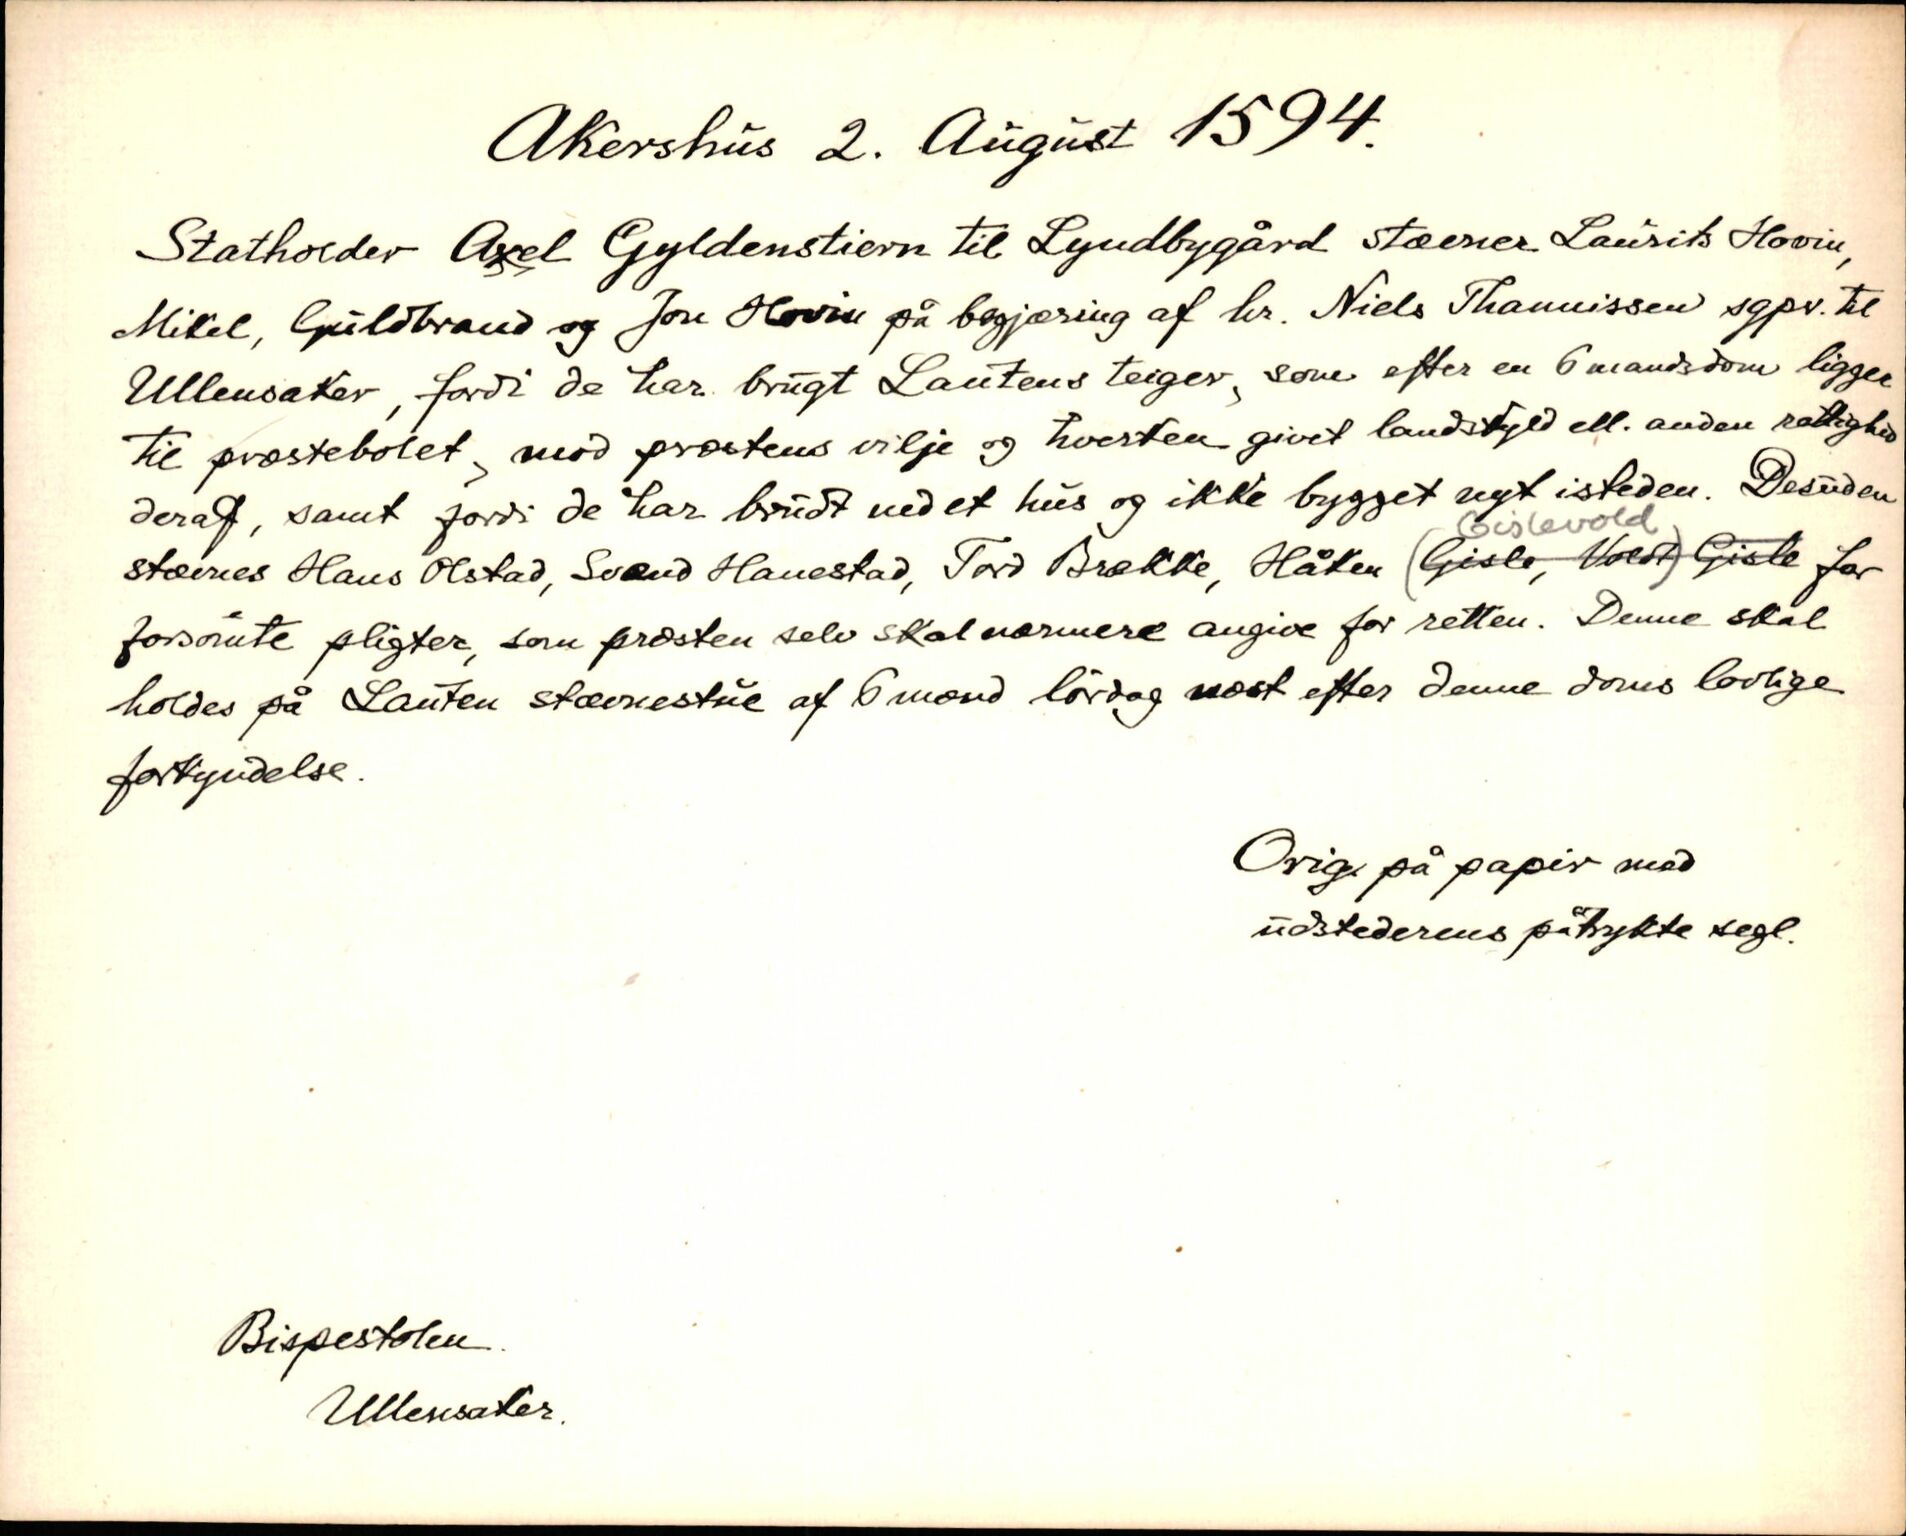 Akershus 2. August 1594.
Statholder Axel Gyldenstiern til Lyndbygård stævner Laurits Hovin,
Mikel, Guldbrand og Jon Hovin på begjæring af hr. Niels Thamissen sgpr. til
Ullensaker, fordi de har brugt Lautens teiger, som efter en 6 mandsdom ligger
til præstebolet, mod præstens vilje og hverken givet landskyld ell. anden rettighed
deraf, samt fordi de har brudt ned et hus og ikke bygget nyt isteden. Desuden
Gislevold
stævnes Hans Olstad, Svend Hanestad, Tord Brække, Håken (Gisle, Voldt) Gisle for
forsömte pligter, som præsten selv skal nærmere angive for retten. Denne skal
holdes på Lauten stævnestue af 6 mænd lördag næst efter denne doms lovlige
forkyndelse.
Orig. på papir med
udstederens påtrykte segl.
Bispestolen.
Ullensaker.